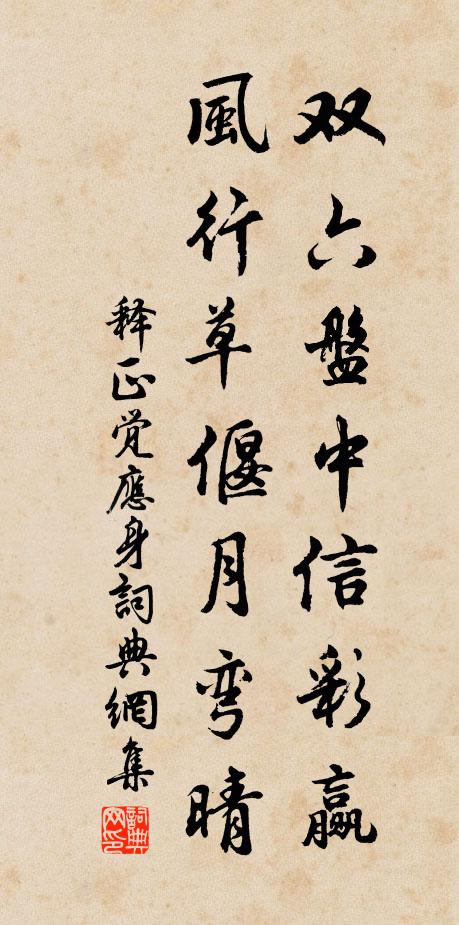 双六盤中信彩赢
風行草偃月弯晴
释正觉應身詞典網集
詞典
网印